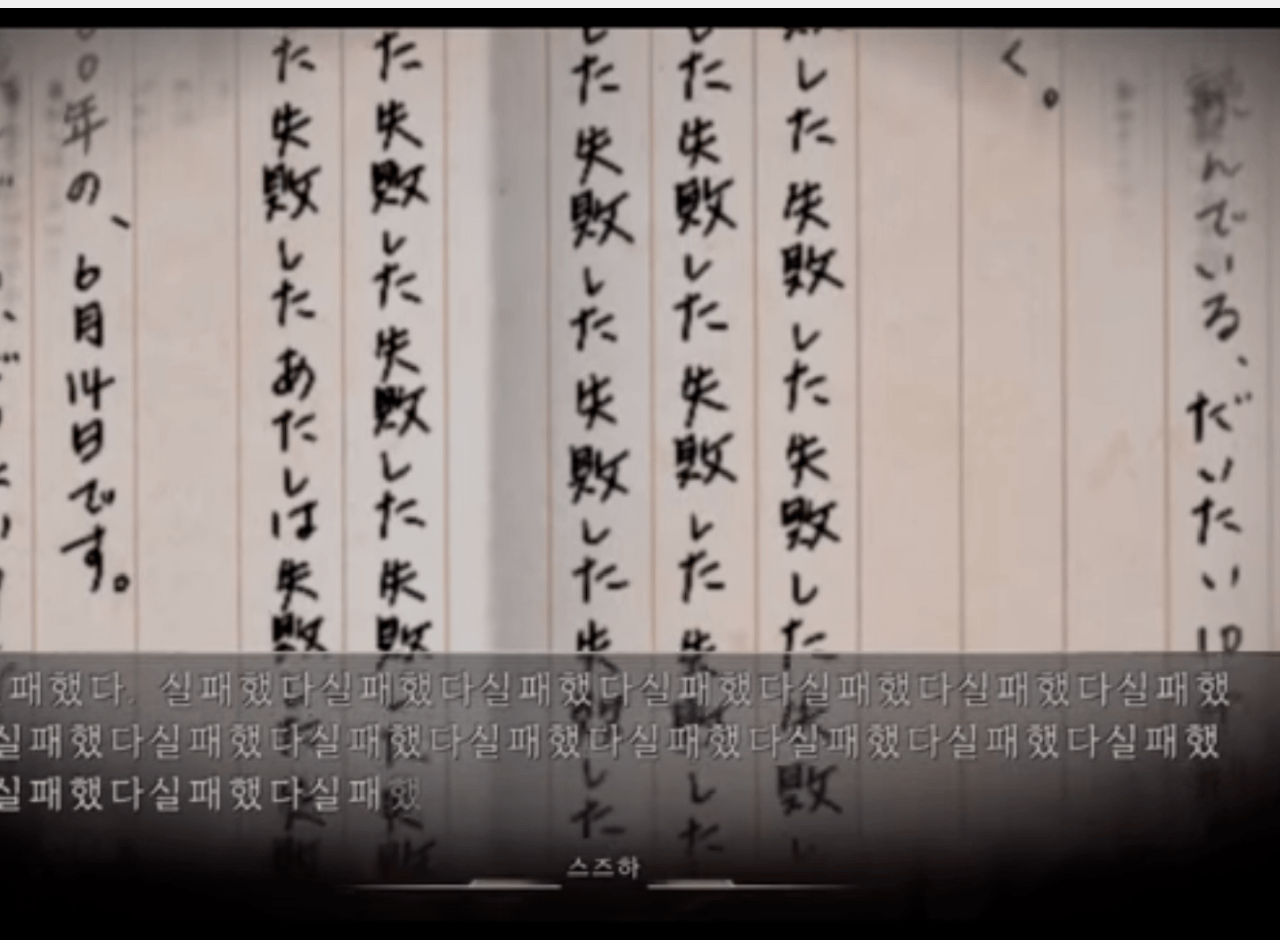 んでいる、だいたい10
く。
敗した失敗した失敗した失敗し
した失敗した失敗した失敗した
した失敗した失敗した失敗した
た失敗した失敗した失敗した失敗
た失敗したあたしは失敗した失敗
00年の、6月14日です。
패했다. 실패했다실패했다실패했다실패했다실패했다실패했다실패했
실패했다실패했다실패했다실패했다실패했다실패했다실패했다실패했
실패했다실패했다실패했
스즈하